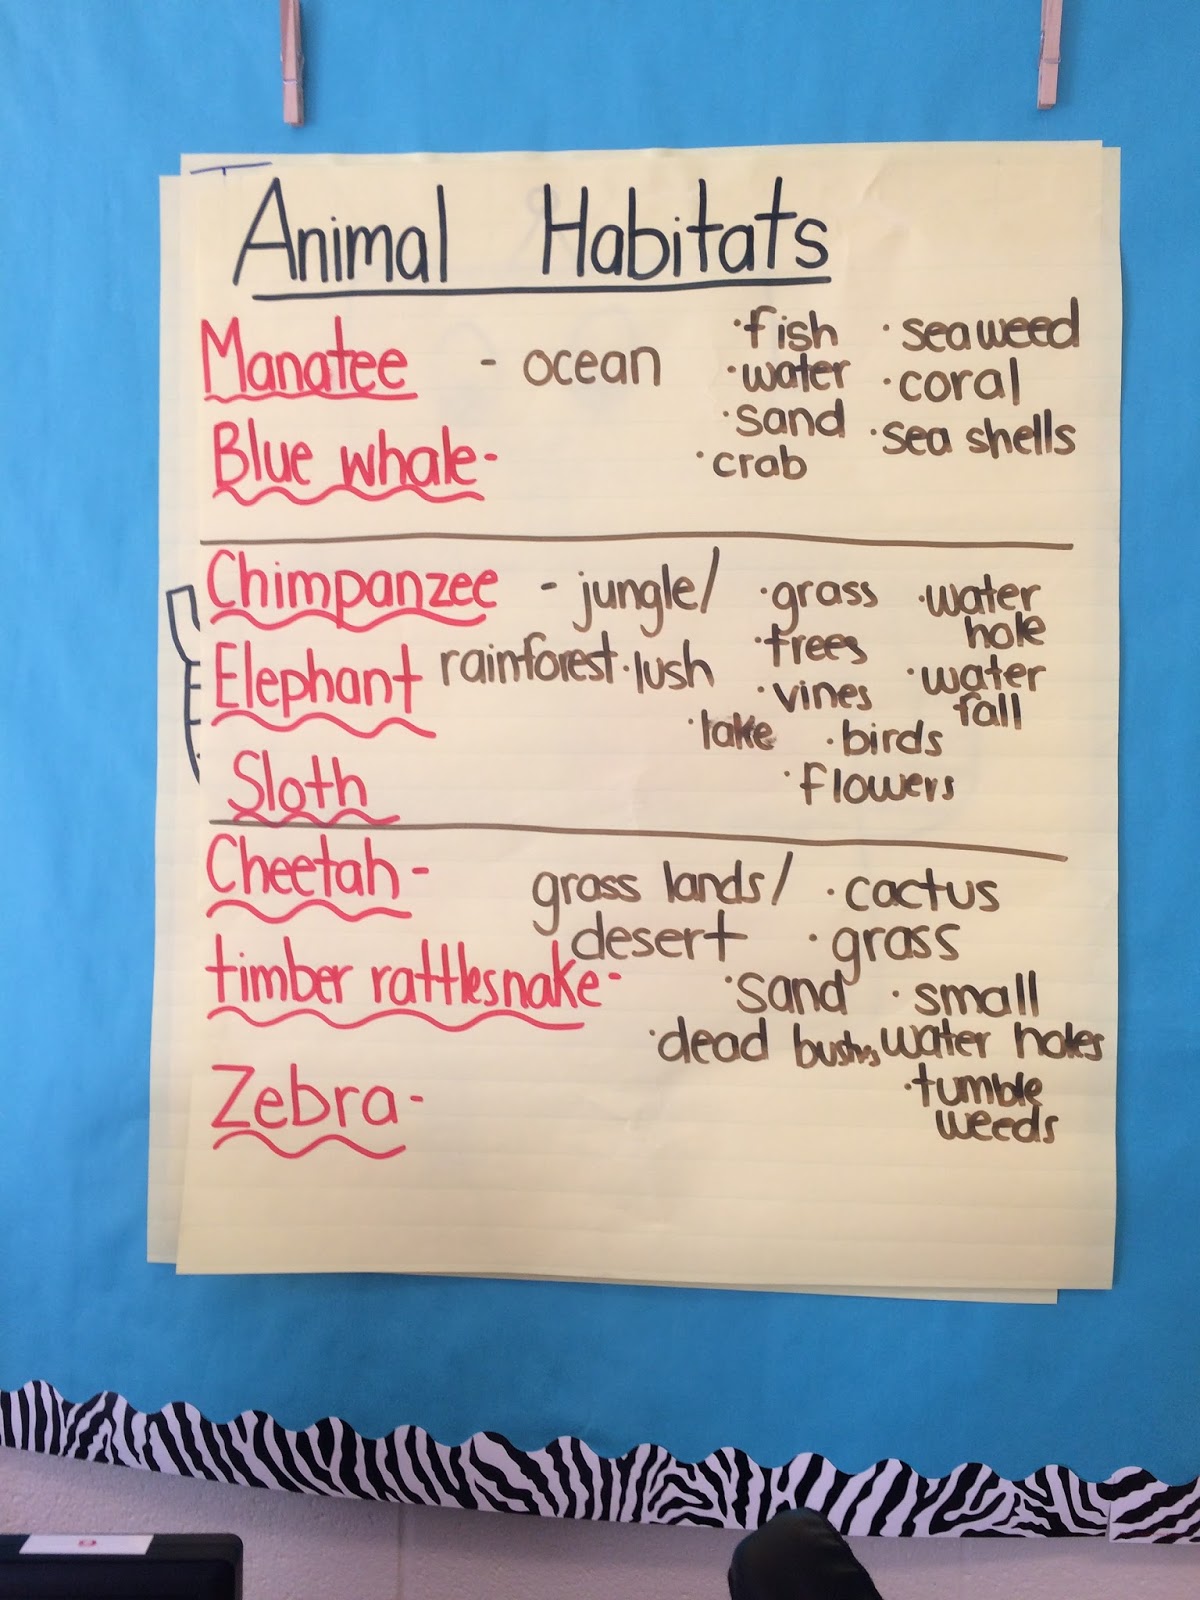 Animal Habitats
Manatee - ocean
Blue whale-
·fish
·water
·sand
·crab
·seaweed
·coral
·sea shells
Chimpanzee - jungle/
Elephant rainforest·lush
Sloth
·grass
·trees
·vines
·lake ·birds
·flowers
·water
hole
·water
fall
Cheetah- grass lands/ ·cactus
desert ·grass
timber rattlesnake- ·sand ·small
·dead bushes water holes
Zebra- ·tumble
weeds